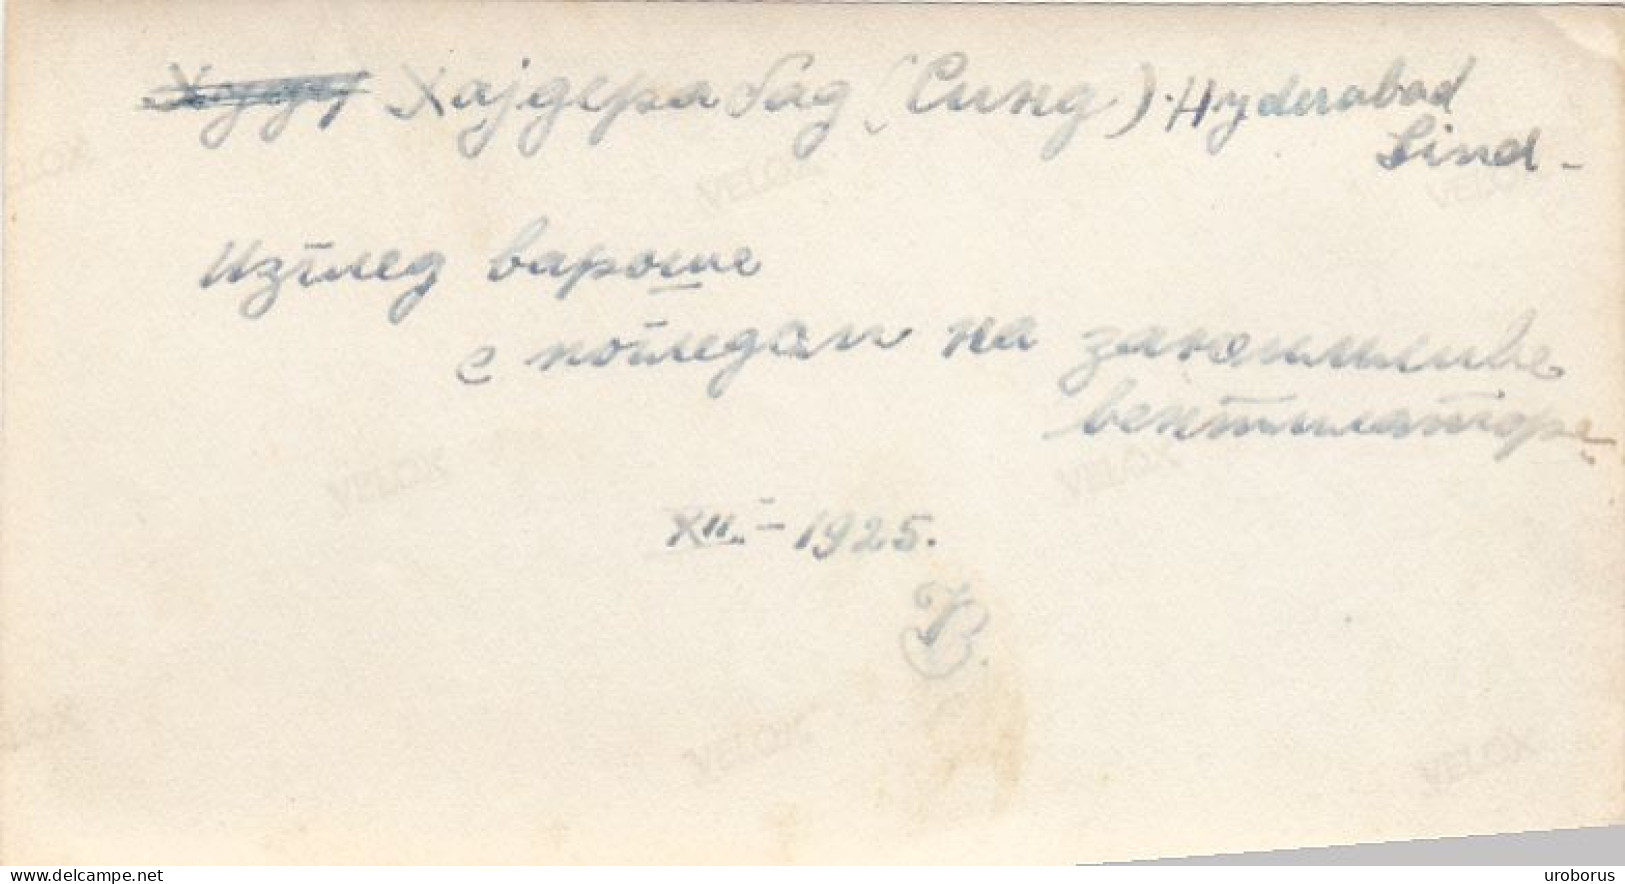 Хајдерабад (Синд). Hyderabad
Sind -
Изглед вароше
с погледом на занимљиве
вентилаторе.
XII - 1925.
VELOX
VELOX
VELOX
VELOX
VELOX
VELOX
VELOX
delcampe.net
uroborus